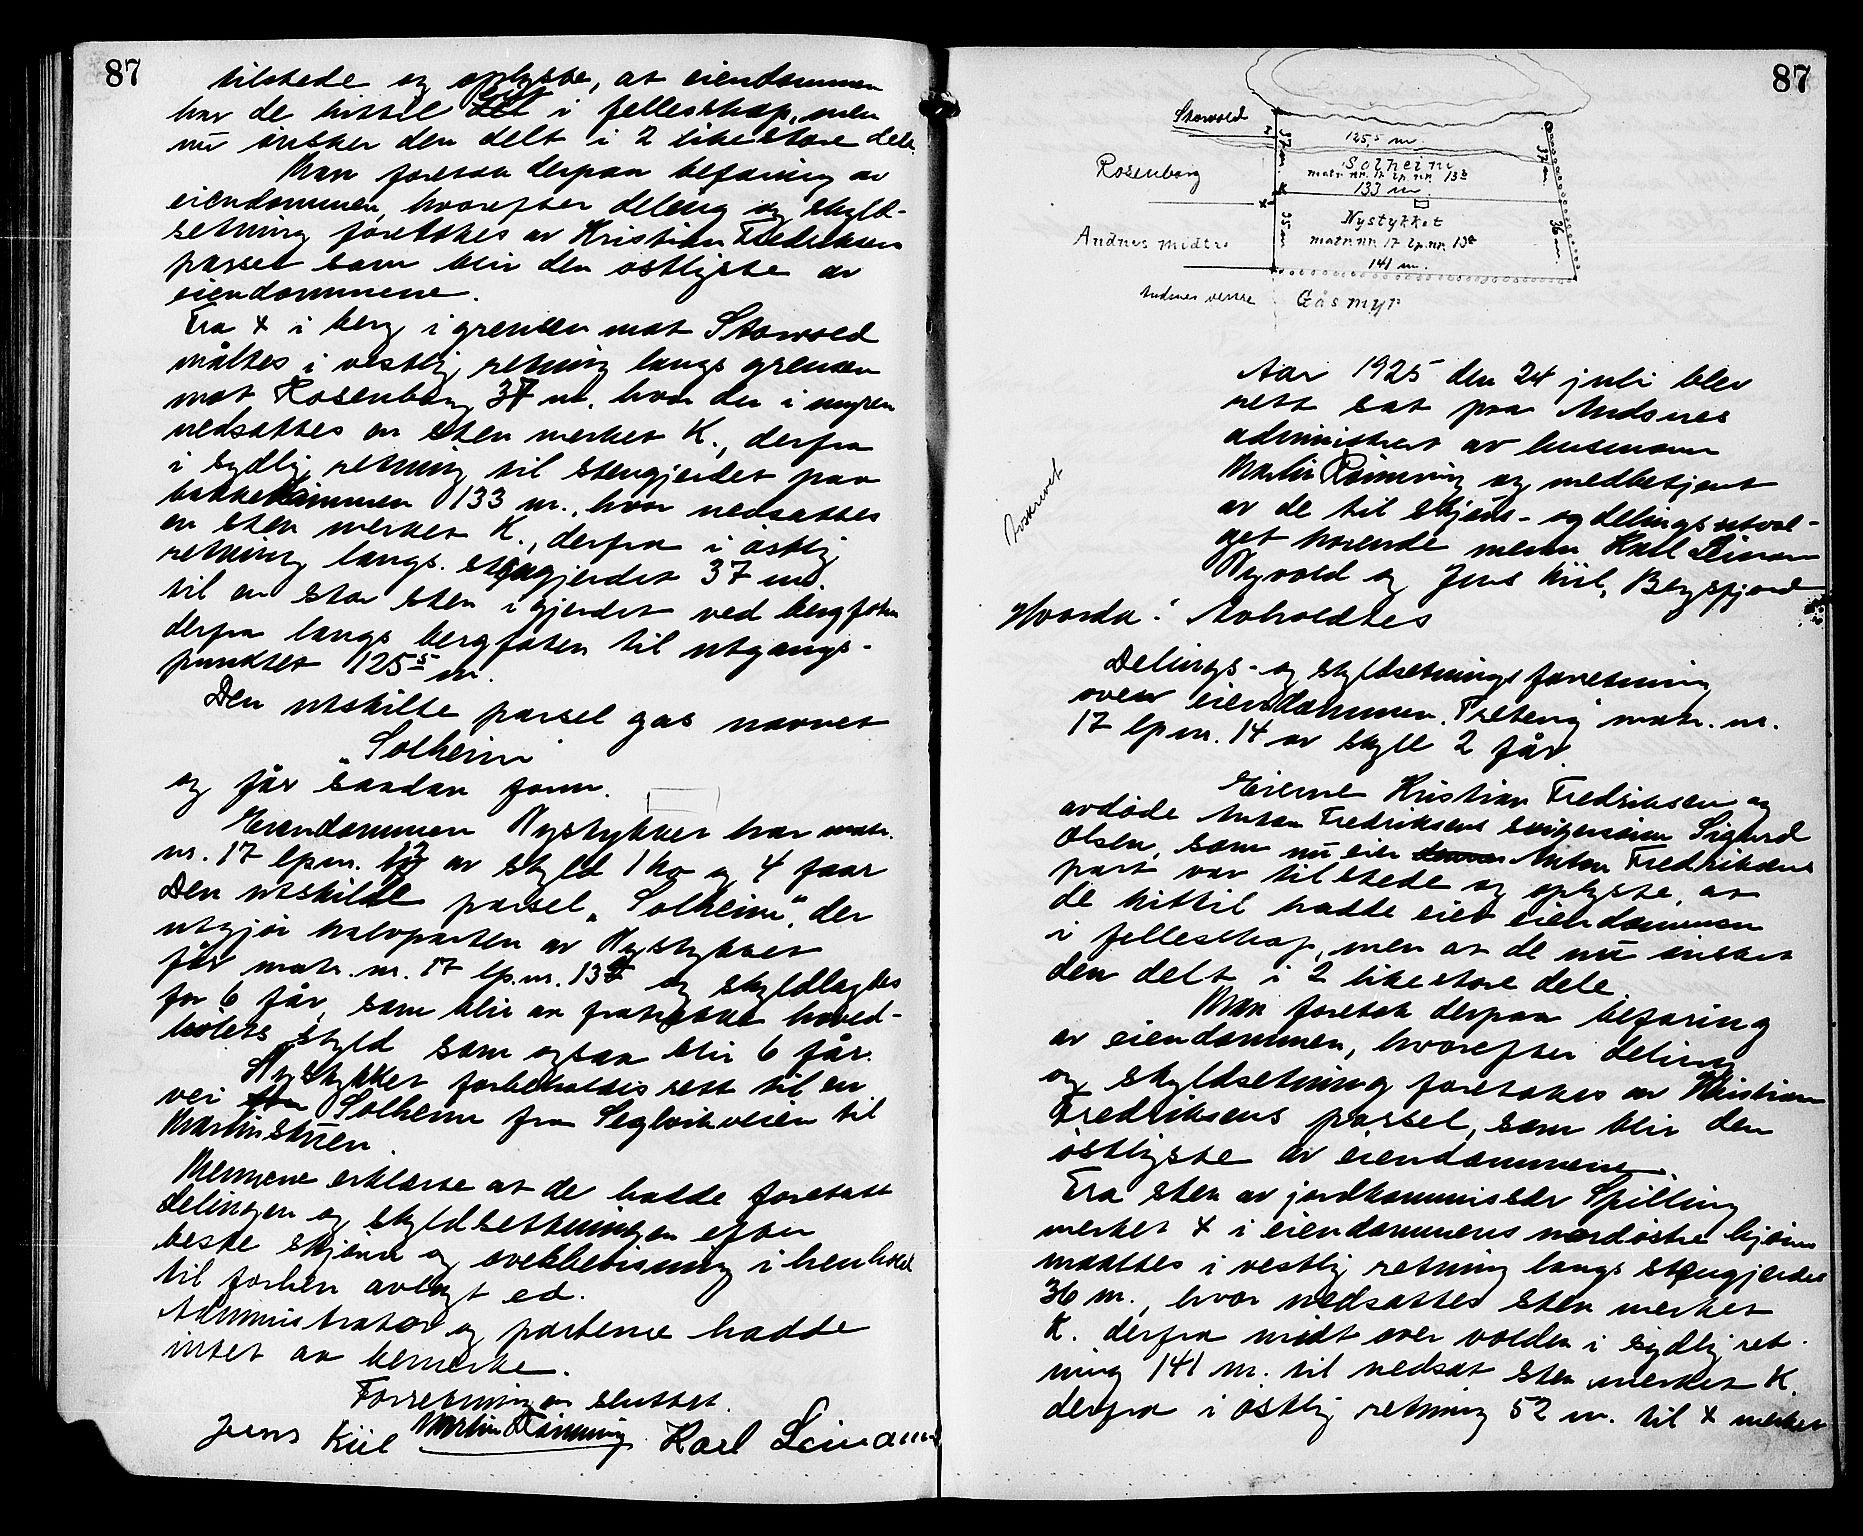 87
tilstede og oplyste, at eiendommen
har de hittil eiet i fellesskap, men
nu ønsker den delt i 2 like store dele.
Man foretok derpaa befaring av
eiendommen, hvorefter deling og skyld-
setning foretokes av Kristian Fredriksens
parsel som blir den østligste av
eiendommene.
Fra x i berg i grensen mot Storvold
måltes i vestlig retning langs grensen
mot Rosenberg 37 m. hvor der i myren
nedsattes en sten merket K., derfra
i sydlig retning til stengjerdet paa
bakkekammen 133 m., hvor nedsattes
en sten merket K., derfra i østlig
retning langs stengjerdet 37 m.
til en stor sten i gjerdet ved bergfoten
derfra langs bergfoten til utgangs-
punktet 125⁵ m.
Den utskilte parsel gas navnet
"Solheim"
og får saadan form.
Eiendommen Nystykket har matr.
nr. 17 lpnr. 13 av skyld 1 ko og 4 faar
Den utskilte parsel "Solheim", der
utgjør halvparten av Nystykket
får matr. nr. 17 lp.nr. 13b og skyldlagtes
for 6 får, som blir at fratrekke hoved-
bølets skyld som ogsaa blir 6 får.
Nystykket forbeholdes rett til en
vei Solheim fra Seglvikveien til
Martinstuen.
Mennene erklærte at de hadde foretatt
delingen og skyldsettningen efter
beste skjønn og overbevisning i henhold
til forhen avlagt ed.
Administrator og parterne hadde
intet at bemerke.
Forretningen sluttet.
Jens Kiil Martin Rønning Karl Leinan
87
Storvold
x
37 m
125,5 m
37 m
Rosenberg
Solheim
matr. nr. 17 lp. nr. 13b
133 m
K
x
Andnes midtre
35 m
Nystykket
matr. nr. 17 lp. nr. 13a
36 m
141 m.
Andnes vestre
Gåsmyr
Aar 1925 den 24 juli blev
rett sat paa Andsnes
administrert av lensmann
Martin Rønning og medbetjent
av de til skjøns- og delingsutval-
get hørende menn Karl Leinan
Nyvold og Jens Kiil, Bergsfjord
Avskrevet
Hvorda: Avholdtes
Delings- og skyldsetningsforretning
over eiendommen matr. nr.
17 lpnr. 14 av skyld 2 får.
Eierne Kristian Fredriksen og
avdøde Anton Fredriksens svigersønn Sigurd
Olsen, som nu eier Anton Fredriksens
part var tilstede og oplyste, at
de hittil hadde eiet eiendommen
i fellesskap, men at de nu ønsket
den delt i 2 like store dele.
Man foretok derpaa befaring
av eiendommen, hvorefter deling
og skyldsetning foretokes av Kristian
Fredriksens parsel, som blir den
østligste av eiendommene.
Fra sten av jordkommissær Spilling
merket x i eiendommens nordøstre hjørne
maaltes i vestlig retning langs stengjerdet
36 m., hvor nedsattes sten merket
K. derfra midt over volden i sydlig ret-
ning 141 m. til nedsat sten merket K.
derfra i østlig retning 52 m. til x merket